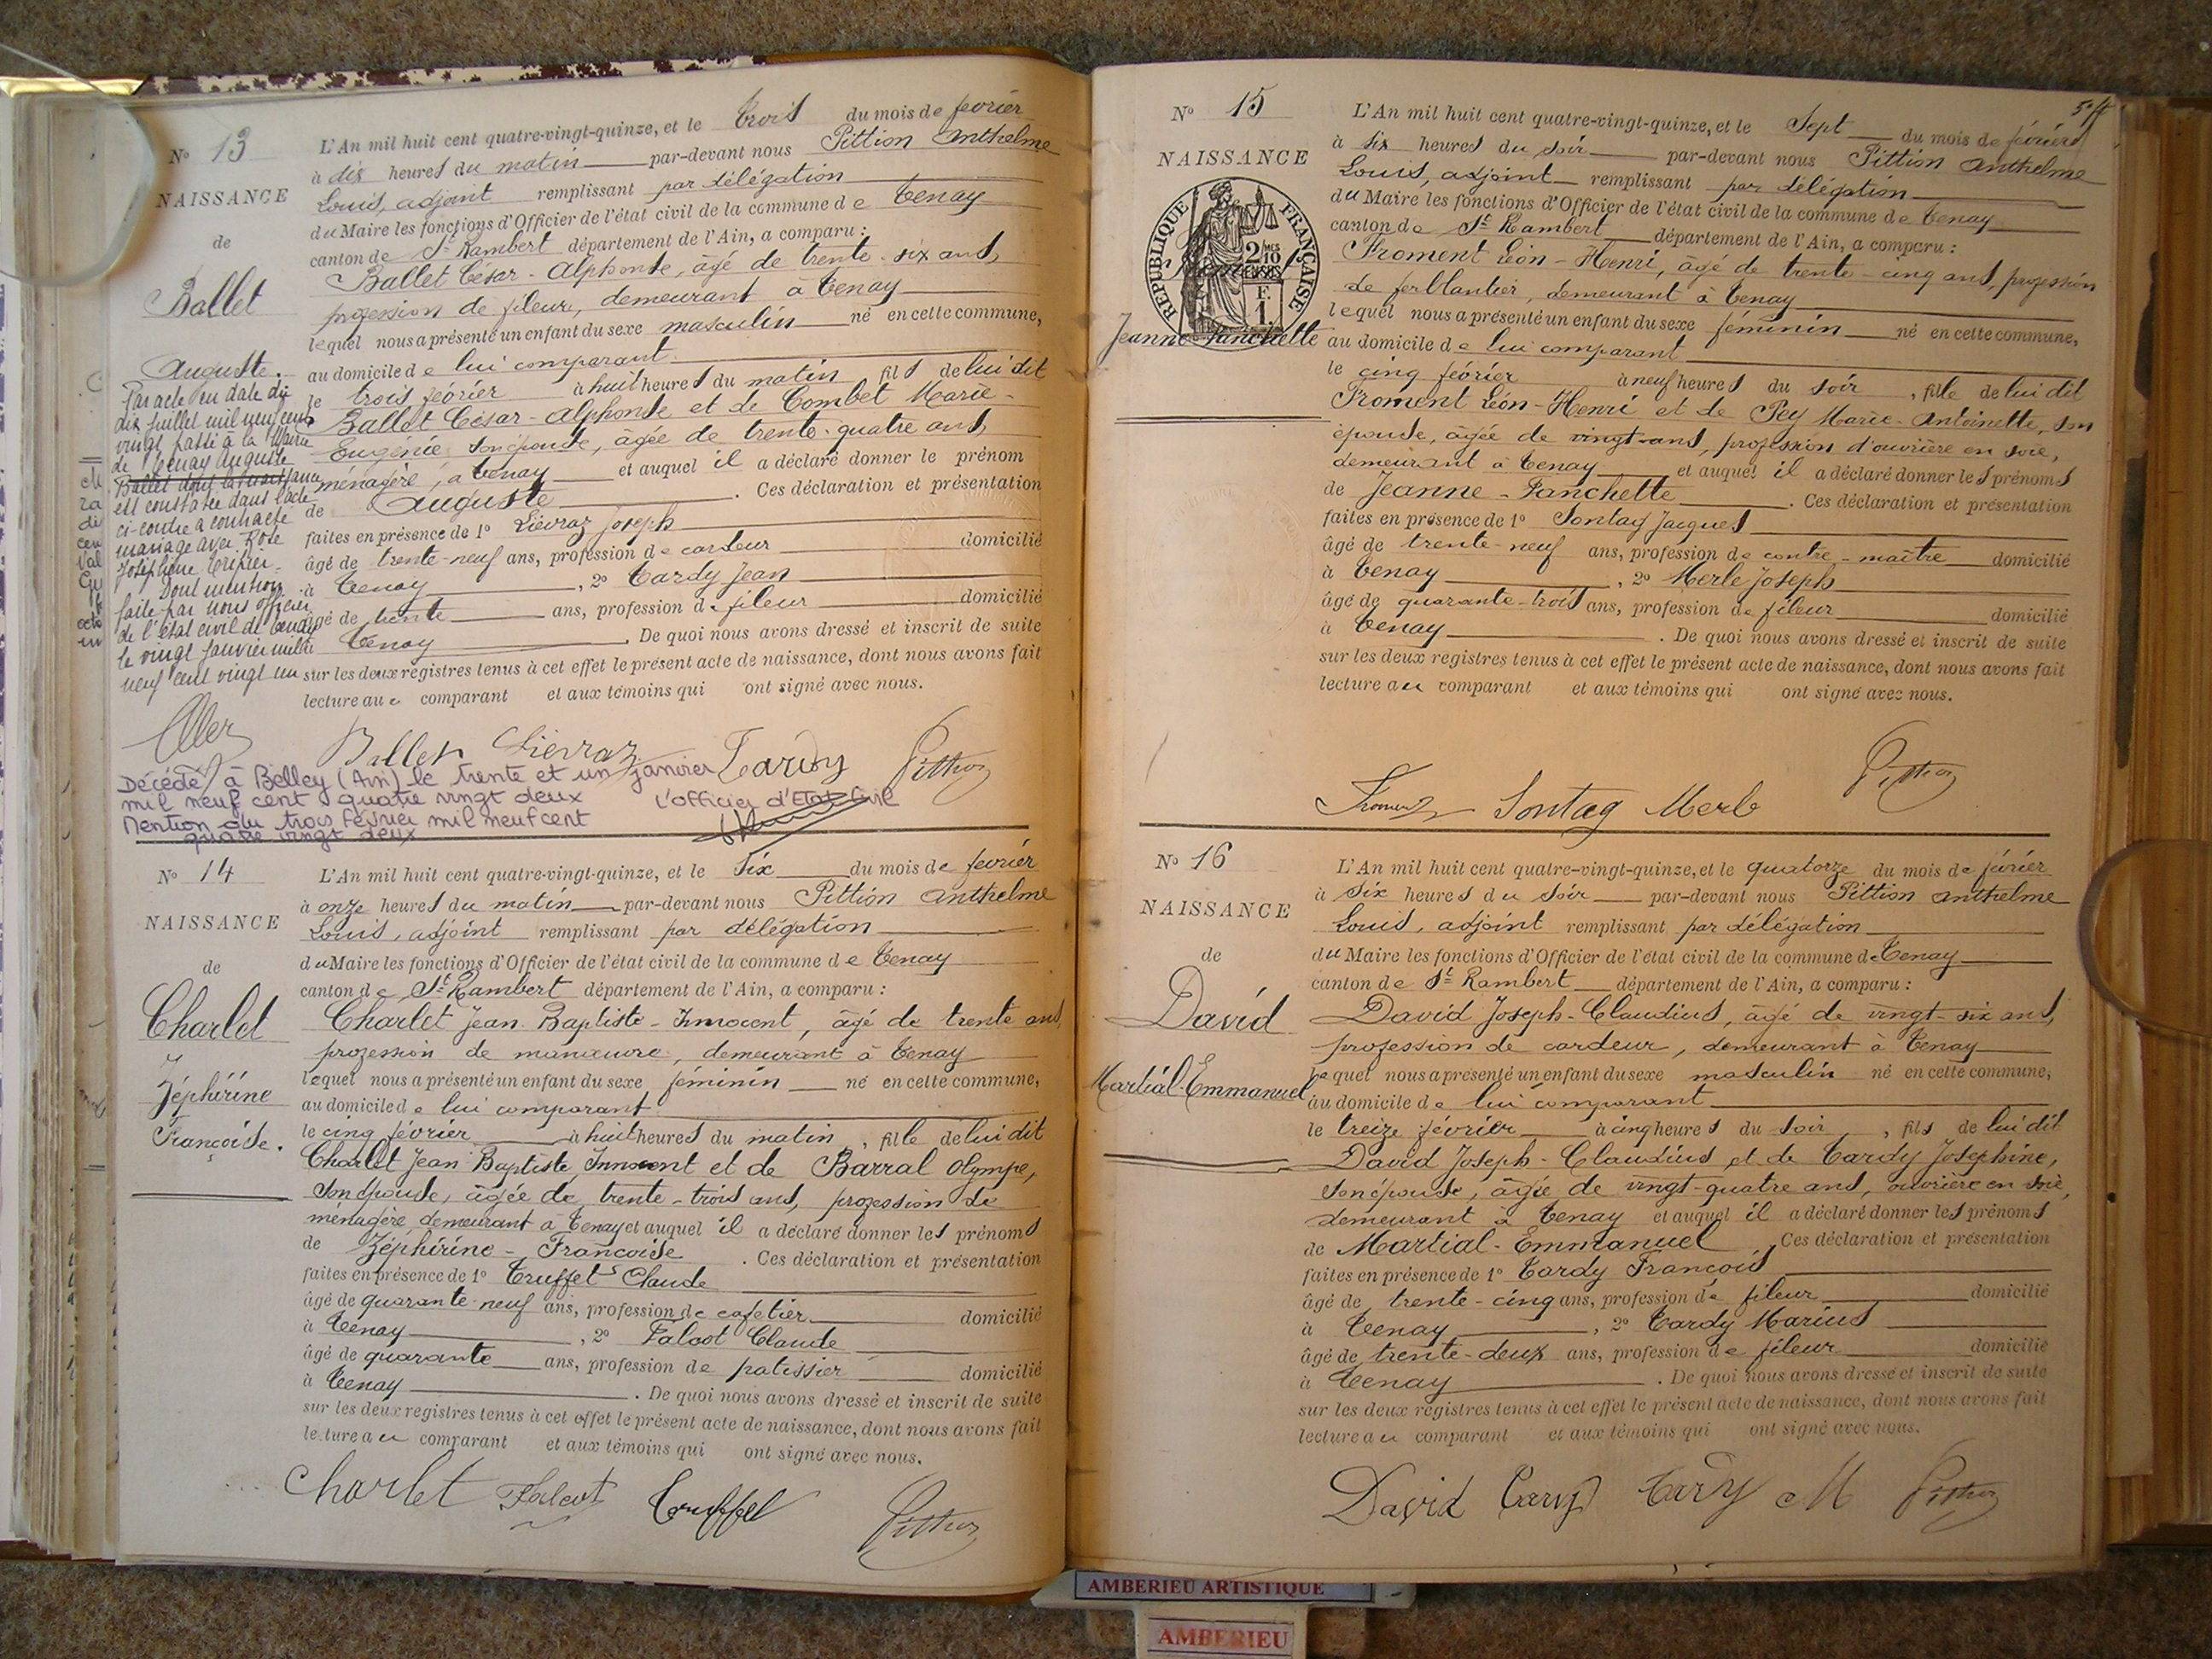 No 13
NAISSANCE
de
Ballet
Auguste.
L'An mil huit cent quatre-vingt-quinze, et le trois du mois de février
à dix heures du matin par-devant nous Pittion Anthelme
Louis, adjoint remplissant par délégation
du Maire les fonctions d'Officier de l'état civil de la commune de Tenay
canton de St Rambert département de l'Ain, a comparu :
Ballet César-Alphonse, âgé de trente-six ans,
profession de fileur, demeurant à Tenay
lequel nous a présenté un enfant du sexe masculin né en cette commune,
au domicile de lui comparant
le trois février à huit heures du matin fils de lui dit
Ballet César-Alphonse et de Combet Marie-
Eugénie son épouse, âgée de trente-quatre ans,
ménagère, à Tenay et auquel il a déclaré donner le prénom
de Auguste. Ces déclaration et présentation
faites en présence de 1° Lievraz Joseph
âgé de trente-neuf ans, profession de cardeur domicilié
à Tenay, 2° Tardy Jean
âgé de trente ans, profession de fileur domicilié
Tenay. De quoi nous avons dressé et inscrit de suite
sur les deux registres tenus à cet effet le présent acte de naissance, dont nous avons fait
lecture au comparant et aux témoins qui ont signé avec nous.
Par acte en date du
dix juillet mil neuf cent
vingt passé à la Mairie
de Tenay Auguste
Ballet dont la naissance
est constatée dans l'acte
ci-contre a contracté
mariage avec Rose
Joséphine
Dont mention
faite par nous officier
de l'état civil de Tenay
le vingt janvier mil
neuf cent vingt un
Ballet Lievraz Tardy Pittion
Décédé à Belley (Ain) le trente et un janvier
mil neuf cent quatre vingt deux L'officier d'Etat Civil
Mention du trois février mil neuf cent
quatre vingt deux
No 14
NAISSANCE
de
Charlet
Zéphirine
Françoise.
L'An mil huit cent quatre-vingt-quinze, et le six du mois de février
à onze heures du matin par-devant nous Pittion Anthelme
Louis, adjoint remplissant par délégation
du Maire les fonctions d'Officier de l'état civil de la commune de Tenay
canton de St Rambert département de l'Ain, a comparu :
Charlet Jean Baptiste-Innocent, âgé de trente ans
profession de manœuvre, demeurant à Tenay
lequel nous a présenté un enfant du sexe féminin né en cette commune,
au domicile de lui comparant
le cinq février à huit heures du matin, fille de lui dit
Charlet Jean Baptiste Innocent et de Barral Olympe,
son épouse, âgée de trente-trois ans, profession de
ménagère demeurant à Tenay et auquel il a déclaré donner les prénoms
de Zéphirine-Françoise. Ces déclaration et présentation
faites en présence de 1° Truffet Claude
âgé de quarante-neuf ans, profession de cafetier domicilié
à Tenay, 2° Falcot Claude
âgé de quarante ans, profession de patissier domicilié
à Tenay. De quoi nous avons dressé et inscrit de suite
sur les deux registres tenus à cet effet le présent acte de naissance, dont nous avons fait
lecture au comparant et aux témoins qui ont signé avec nous.
Charlet Falcot Truffet Pittion
No 15
NAISSANCE
REPUBLIQUE FRANÇAISE
2/10 MES EN SUS
F. 1.
Jeanne Fanchette
L'An mil huit cent quatre-vingt-quinze, et le sept du mois de février
à six heures du soir par-devant nous Pittion Anthelme
Louis, adjoint remplissant par délégation
du Maire les fonctions d'Officier de l'état civil de la commune de Tenay
canton de St Rambert département de l'Ain, a comparu :
Froment Léon-Henri, âgé de trente-cinq ans, profession
de ferblantier, demeurant à Tenay
lequel nous a présenté un enfant du sexe féminin né en cette commune,
au domicile de lui comparant
le cinq février à neuf heures du soir, fille de lui dit
Froment Léon-Henri et de Pey Marie-Antoinette, son
épouse, âgée de vingt-ans, profession d'ouvrière en soie,
demeurant à Tenay et auquel il a déclaré donner les prénoms
de Jeanne-Fanchette. Ces déclaration et présentation
faites en présence de 1° Sontag Jacques
âgé de trente-neuf ans, profession de contre-maître domicilié
à Tenay, 2° Merle Joseph
âgé de quarante-trois ans, profession de fileur domicilié
à Tenay. De quoi nous avons dressé et inscrit de suite
sur les deux registres tenus à cet effet le présent acte de naissance, dont nous avons fait
lecture au comparant et aux témoins qui ont signé avec nous.
Froment Sontag Merle Pittion
No 16
NAISSANCE
de
David
Martial-Emmanuel
L'An mil huit cent quatre-vingt-quinze, et le quatorze du mois de février
à six heures du soir par-devant nous Pittion Anthelme
Louis, adjoint remplissant par délégation
du Maire les fonctions d'Officier de l'état civil de la commune de Tenay
canton de St Rambert département de l'Ain, a comparu :
David Joseph-Claudius, âgé de vingt-six ans,
profession de cardeur, demeurant à Tenay
lequel nous a présenté un enfant du sexe masculin né en cette commune,
au domicile de lui comparant
le treize février à cinq heures du soir, fils de lui dit
David Joseph-Claudius et de Tardy Josephine,
son épouse, âgée de vingt-quatre ans, ouvrière en soie,
demeurant à Tenay et auquel il a déclaré donner les prénoms
de Martial-Emmanuel. Ces déclaration et présentation
faites en présence de 1° Tardy François
âgé de trente-cinq ans, profession de fileur domicilié
à Tenay, 2° Tardy Marius
âgé de trente-deux ans, profession de fileur domicilié
à Tenay. De quoi nous avons dressé et inscrit de suite
sur les deux registres tenus à cet effet le présent acte de naissance, dont nous avons fait
lecture au comparant et aux témoins qui ont signé avec nous.
David Tardy Tardy M Pittion
AMBERIEU ARTISTIQUE
AMBERIEU